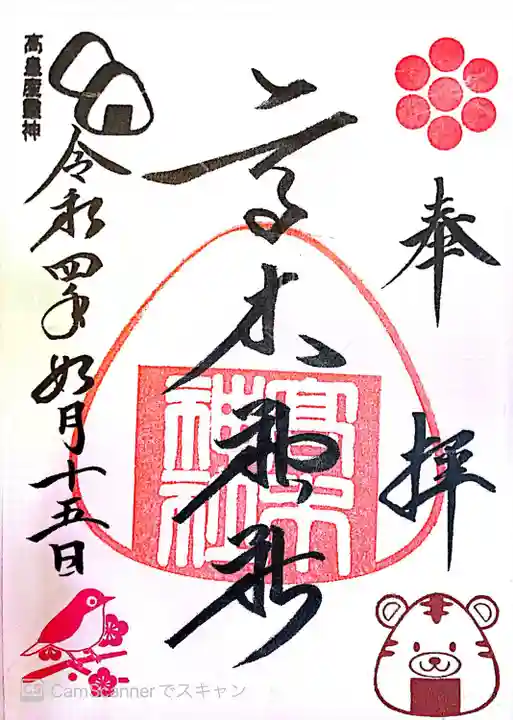 奉拝
高木神社
高木
神社
令和四年如月十五日
高皇産靈神
CamScannerでスキャン